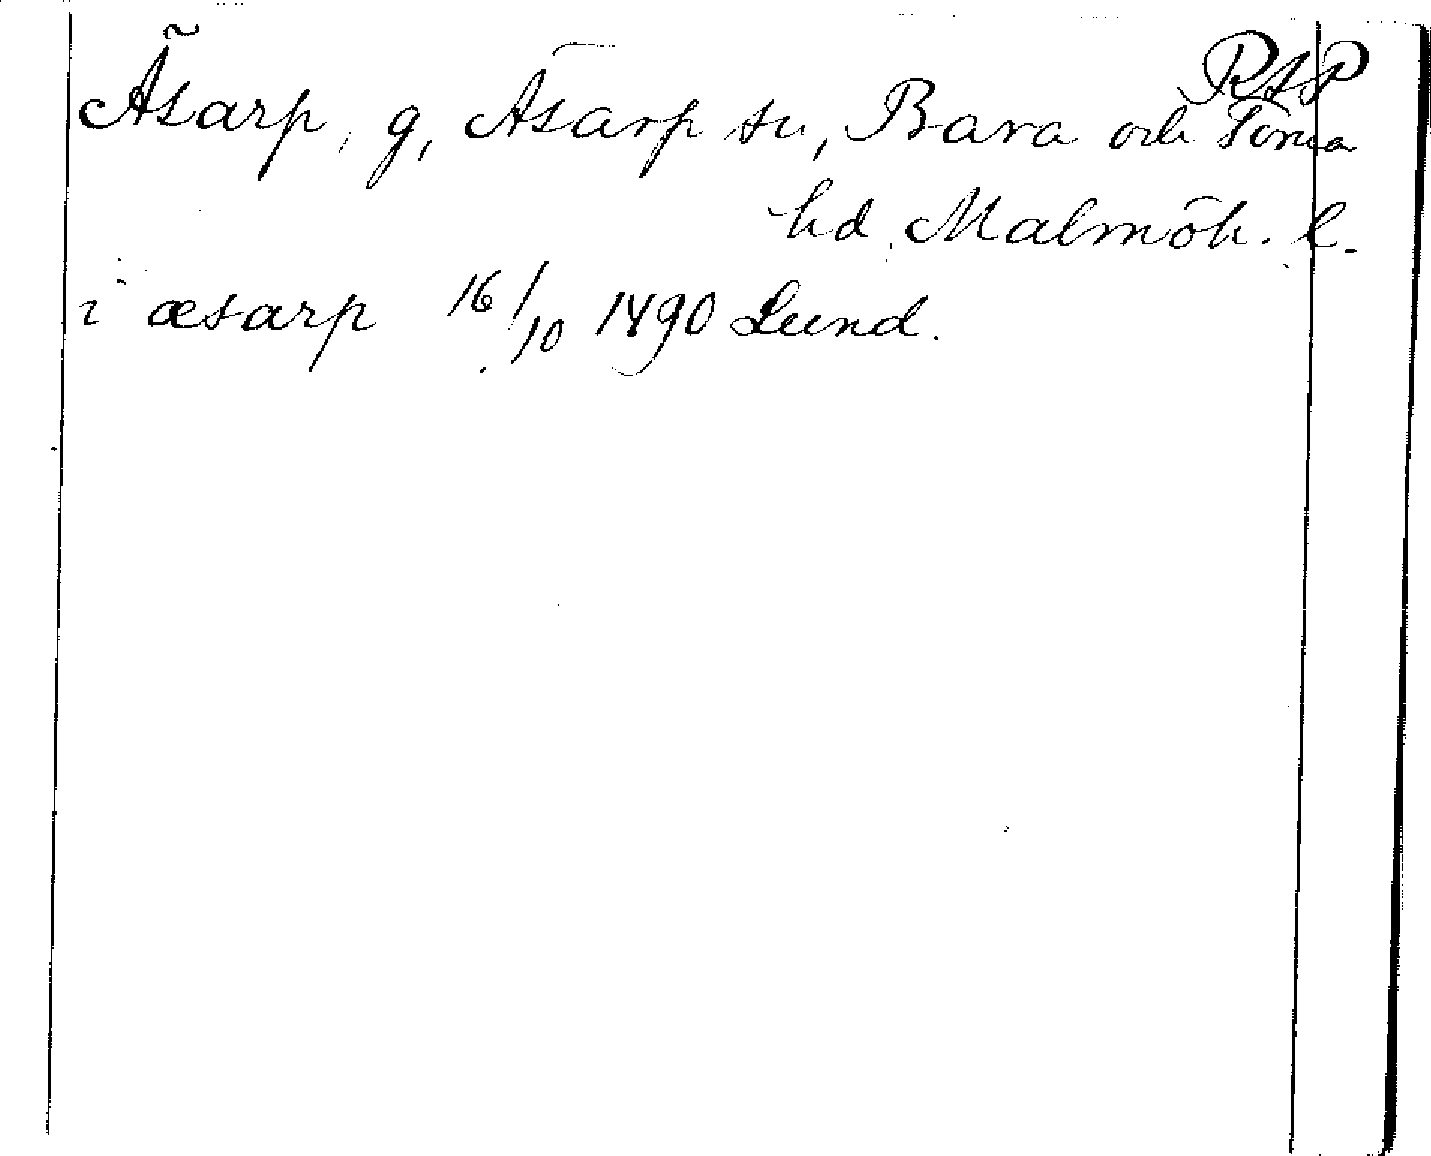 RAP
Äsarp, g, Äsarp sn, Bara och Torna
hd, Malmöh. l.
i æsarp 16/10 1490 Lund.